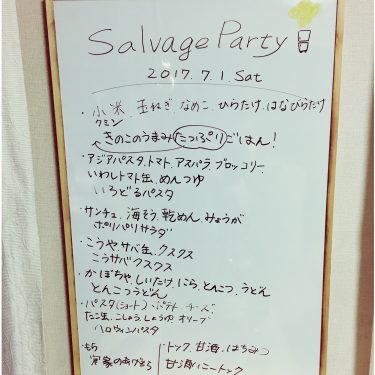 Salvage Party
2017.7.1.Sat
・小米、玉ねぎ、なめこ、ひらたけ、はなびらたけ
クミン
きのこのうまみたっぷりごはん!
・アジアパスタ、トマト、アスパラ、ブロッコリー、
いわしトマト缶、めんつゆ
いろどるパスタ
・サンチュ、海そう、乾めん、みょうが
ポリパリサラダ
・こうや、サバ缶、クスクス
こうサバクスクス
・かぼちゃ、しいたけ、にら、とんこつ、うどん
とんこつうどん
・パスタ(ショート)、ポテト、チーズ
たこ缶、こしょう、しょうゆ、オリーブ
ハロウィンパスタ
・もち
実家のあげもち
・トック、甘酒、はちみつ
甘酒ハニートック